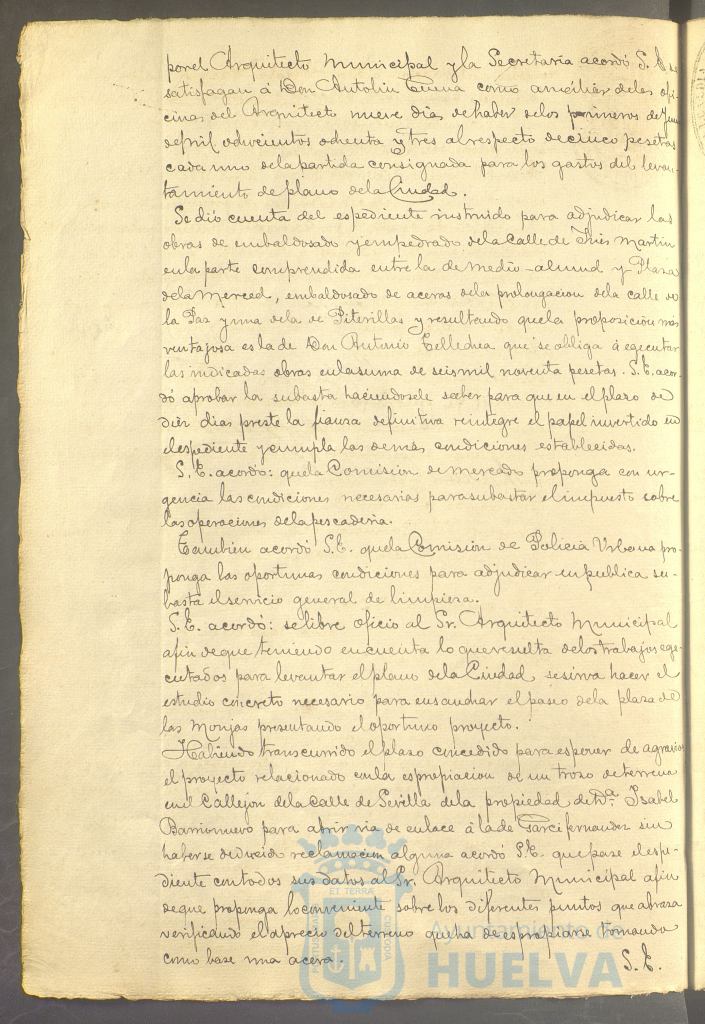 por el Arquitecto Municipal y la Secretaria acordó S. E. se
satisfagan á Don Antolin Cuena como aucsiliar delas ofi-
cinas del Arquitecto nueve dias de haber delos primeros de
de mil ochocientos ochenta y tres al respecto de cinco pesetas
cada uno dela partida consignada para los gastos del levan-
tamiento de plano dela Ciudad.
Se dió cuenta del espediente instruido para adjudicar las
obras de embaldosado y empedrado dela Calle de Martin
en la parte comprendida entre la de Medio-almud y Plaza
dela Merced, embaldosado de aceras dela prolongacion dela calle de
la Paz y una dela de Piterillas y resultando que la proposicion mas
ventajosa es la de Don Antonio que se obliga á egecutar
las indicadas obras en la suma de seis mil noventa pesetas. S. E. acor-
dó aprobar la subasta haciendosele saber para que en el plazo de
diez dias preste la fianza definitiva reintegre el papel invertido en
el espediente y cumpla las demás condiciones establecidas.
S. E. acordó: que la Comision de mercado proponga con ur-
gencia las condiciones necesarias para subastar el impuesto sobre
las operaciones dela pescaderia.
Tambien acordó S. E. que la Comision de Policia Urbana pro-
ponga las oportunas condiciones para adjudicar en publica su-
basta el servicio general de limpieza.
S. E. acordó: se libre oficio al Sr. Arquitecto Municipal
afin de que teniendo en cuenta lo que resulta delos trabajos ege-
cutados para levantar el plano dela Ciudad se sirva hacer el
estudio concreto necesario para ensanchar el paseo dela plaza de
las Monjas presentando el oportuno proyecto.
Habiendo transcurrido el plazo concedido para esponer de agravios
el proyecto relacionado con la espropiacion de un trozo de terreno
en el Callejon dela Calle de Sevilla dela propiedad de Dª Isabel
Barrionuevo para abrir via de enlace á la de Garcifernandez sin
haberse deducido reclamacion alguna acordó S. E. que pase el espe-
diente con todos sus datos al Sr. Arquitecto Municipal afin
de que proponga lo conveniente sobre los diferentes puntos que abraza
verificando el aprecio del terreno que ha de espropiarse tomando
como base una acera. S. E.
ET TERRA
Ayuntamiento de
HUELVA